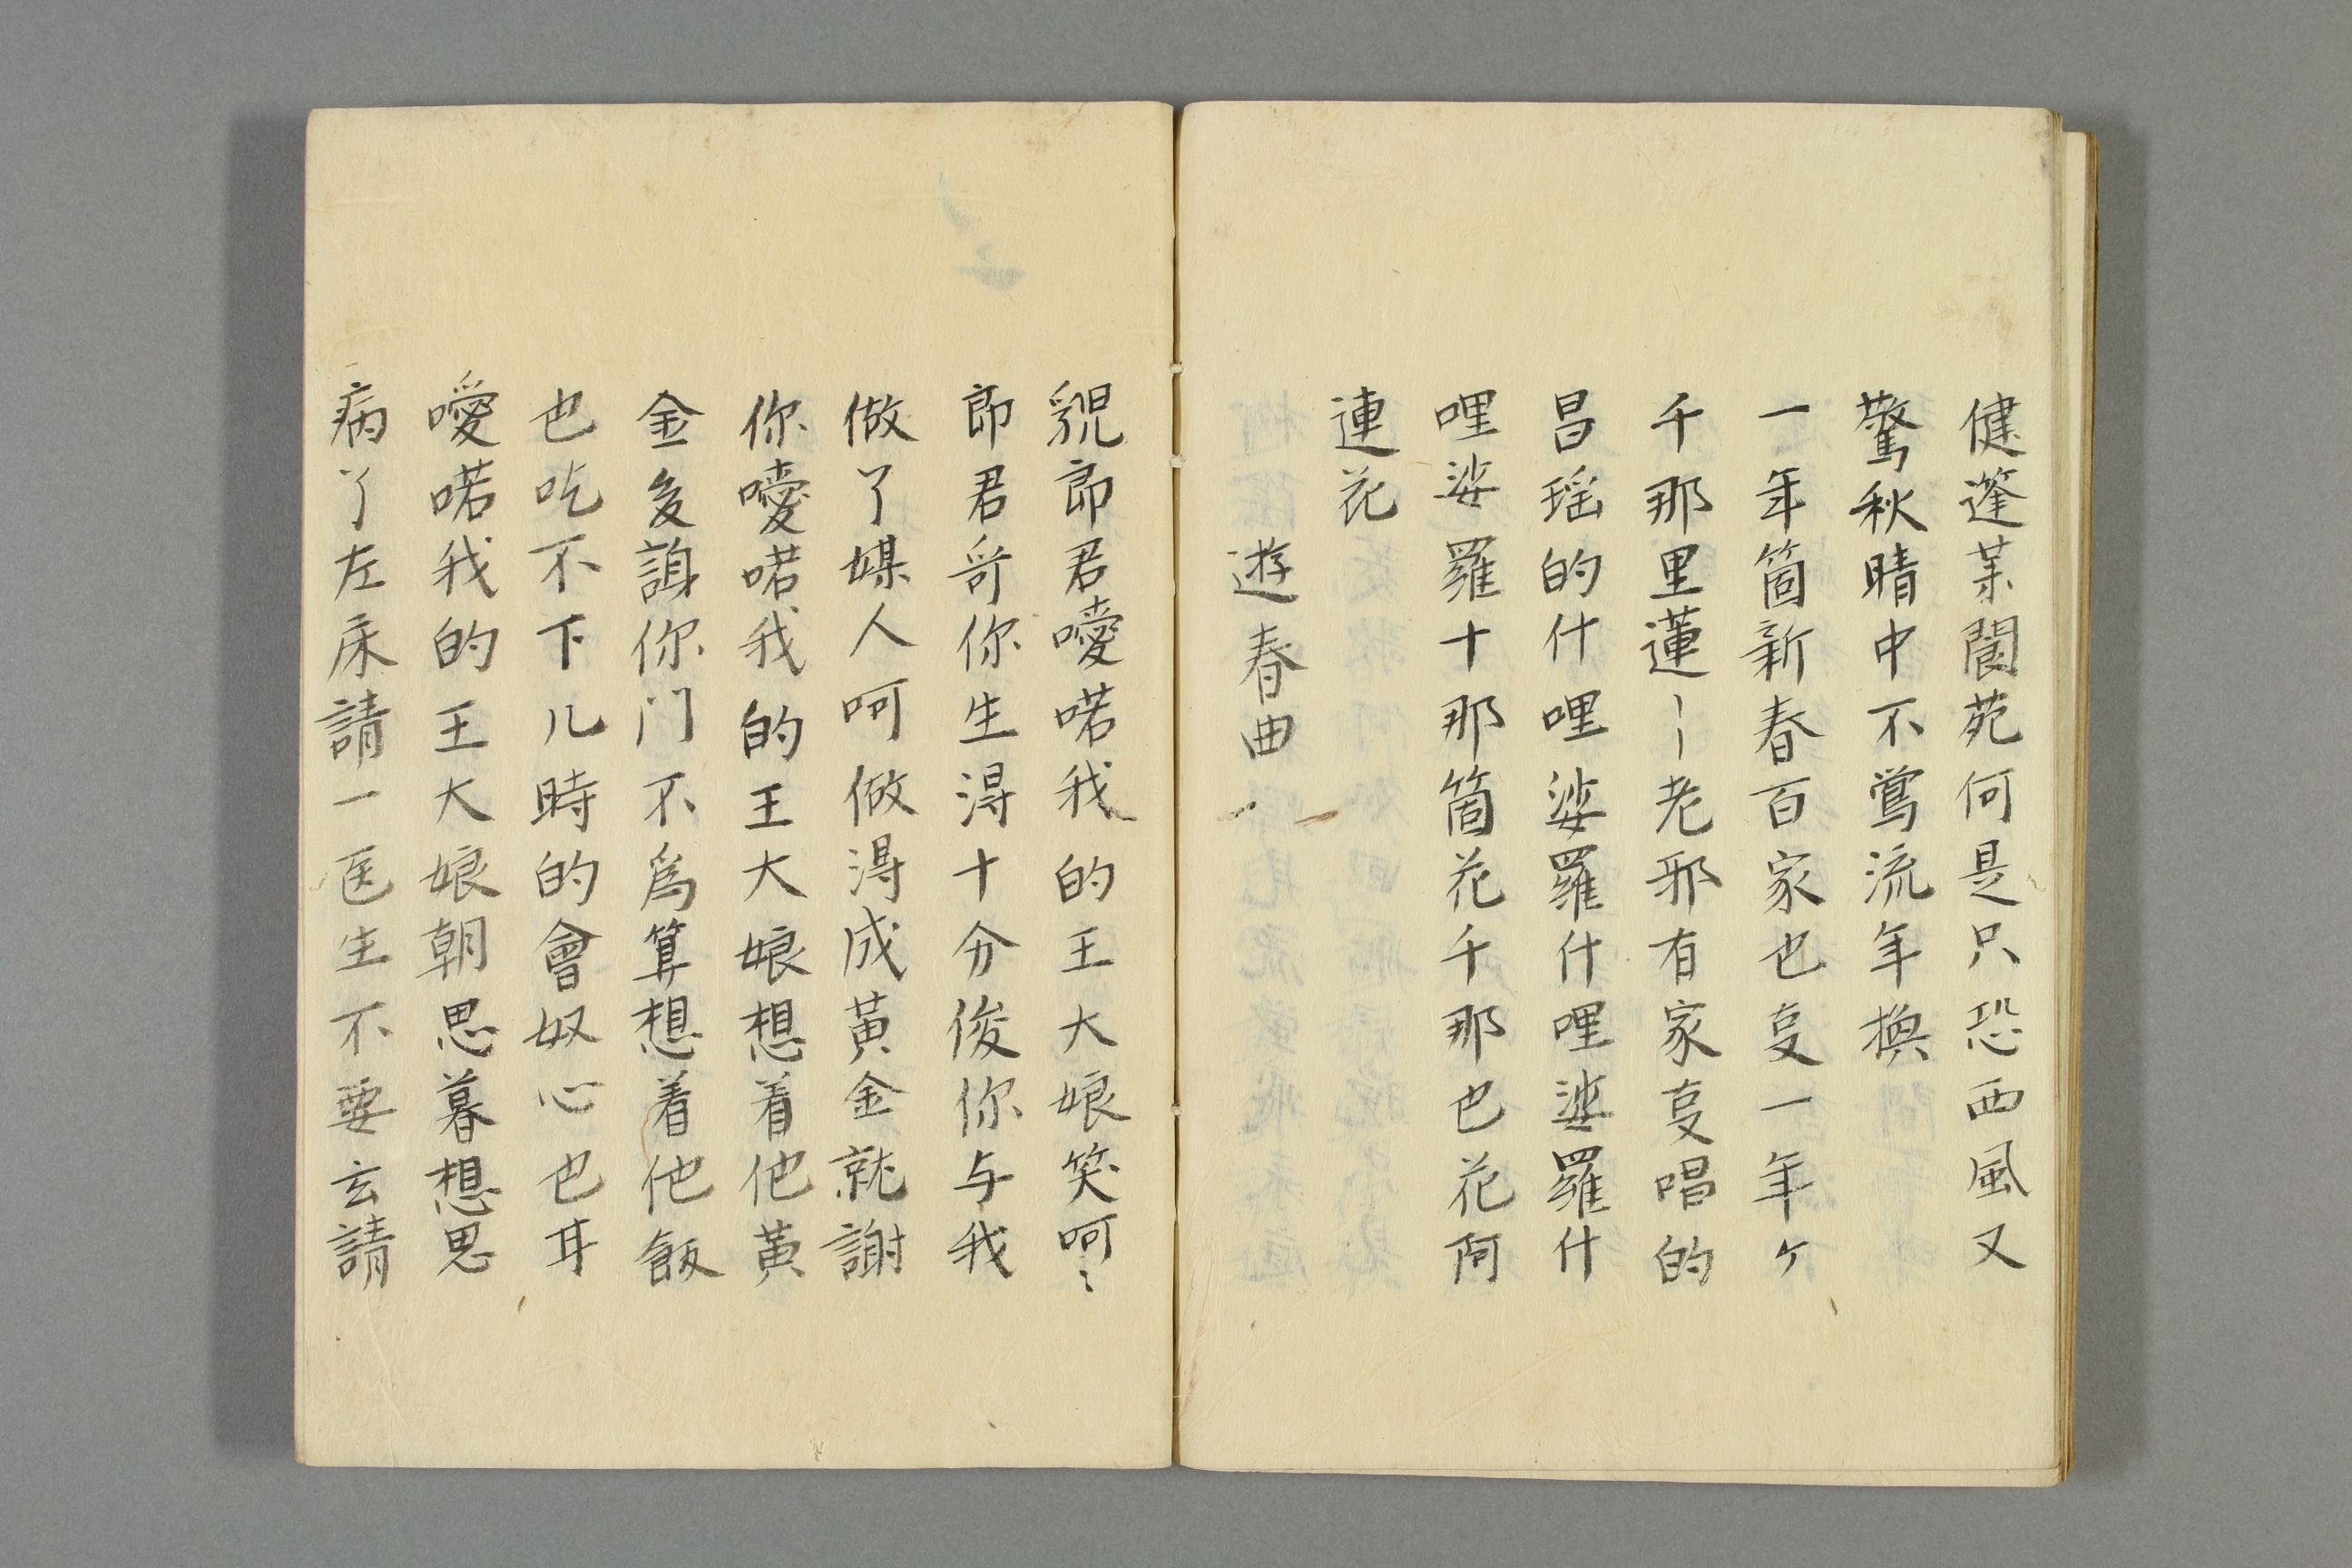 健蓬莱閬苑何是只恐西風又
驚秋晴中不鴬流年換
一年箇新春百家也㪅一年ヶ
千那里蓮〻〻老那有家㪅唱的
昌瑶的什哩娑羅什哩娑羅什
哩娑羅十那箇花千那也花阿
連花
遊春曲
郎君噯喏我的王大娘笑呵〻
郎君哥你生得十分俊你与我
做了媒人呵做得成黄金就謝
你噯喏我的王大娘想着他黄
金多謝你门不爲算想着他飯
也吃不下儿時的會奴心也甘
噯喏我的王大娘朝思暮想思
病了左床請一医生不要玄請